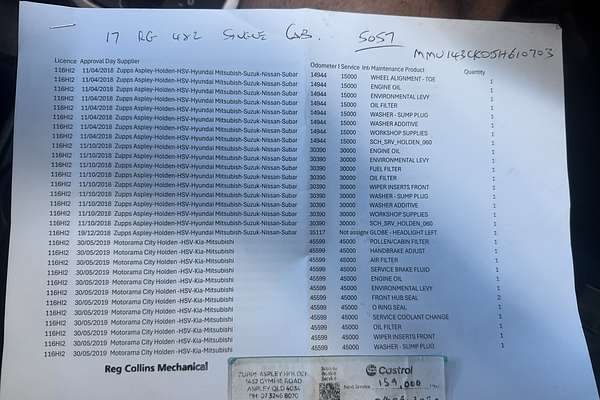 17 RG 4x2 SINGLE CAB. 5057
MMU143CK0JH610703
Licence Approval Day Supplier Odometer Service Maintenance Product Quantity
116HI2 11/04/2018 Zupps Aspley-Holden-HSV-Hyundai Mitsubish-Suzuk-Nissan-Subar 14944 15000 WHEEL ALIGNMENT - TOE 1
116HI2 11/04/2018 Zupps Aspley-Holden-HSV-Hyundai Mitsubish-Suzuk-Nissan-Subar 14944 15000 ENGINE OIL 1
116HI2 11/04/2018 Zupps Aspley-Holden-HSV-Hyundai Mitsubish-Suzuk-Nissan-Subar 14944 15000 ENVIRONMENTAL LEVY 1
116HI2 11/04/2018 Zupps Aspley-Holden-HSV-Hyundai Mitsubish-Suzuk-Nissan-Subar 14944 15000 OIL FILTER 1
116HI2 11/04/2018 Zupps Aspley-Holden-HSV-Hyundai Mitsubish-Suzuk-Nissan-Subar 14944 15000 WASHER - SUMP PLUG 1
116HI2 11/04/2018 Zupps Aspley-Holden-HSV-Hyundai Mitsubish-Suzuk-Nissan-Subar 14944 15000 WASHER ADDITIVE 1
116HI2 11/04/2018 Zupps Aspley-Holden-HSV-Hyundai Mitsubish-Suzuk-Nissan-Subar 14944 15000 WORKSHOP SUPPLIES 1
116HI2 11/04/2018 Zupps Aspley-Holden-HSV-Hyundai Mitsubish-Suzuk-Nissan-Subar 14944 15000 SCH_SRV_HOLDEN_060 1
116HI2 11/10/2018 Zupps Aspley-Holden-HSV-Hyundai Mitsubish-Suzuk-Nissan-Subar 30390 30000 ENGINE OIL 1
116HI2 11/10/2018 Zupps Aspley-Holden-HSV-Hyundai Mitsubish-Suzuk-Nissan-Subar 30390 30000 ENVIRONMENTAL LEVY 1
116HI2 11/10/2018 Zupps Aspley-Holden-HSV-Hyundai Mitsubish-Suzuk-Nissan-Subar 30390 30000 FUEL FILTER 1
116HI2 11/10/2018 Zupps Aspley-Holden-HSV-Hyundai Mitsubish-Suzuk-Nissan-Subar 30390 30000 OIL FILTER 1
116HI2 11/10/2018 Zupps Aspley-Holden-HSV-Hyundai Mitsubish-Suzuk-Nissan-Subar 30390 30000 WIPER INSERTS FRONT 1
116HI2 11/10/2018 Zupps Aspley-Holden-HSV-Hyundai Mitsubish-Suzuk-Nissan-Subar 30390 30000 WASHER - SUMP PLUG 1
116HI2 11/10/2018 Zupps Aspley-Holden-HSV-Hyundai Mitsubish-Suzuk-Nissan-Subar 30390 30000 WASHER ADDITIVE 1
116HI2 11/10/2018 Zupps Aspley-Holden-HSV-Hyundai Mitsubish-Suzuk-Nissan-Subar 30390 30000 WORKSHOP SUPPLIES 1
116HI2 11/10/2018 Zupps Aspley-Holden-HSV-Hyundai Mitsubish-Suzuk-Nissan-Subar 30390 30000 SCH_SRV_HOLDEN_060 1
116HI2 19/12/2018 Zupps Aspley-Holden-HSV-Hyundai Mitsubish-Suzuk-Nissan-Subar 35117 Not assigne GLOBE - HEADLIGHT LEFT 1
116HI2 30/05/2019 Motorama City Holden -HSV-Kia-Mitsubishi 45599 45000 POLLEN/CABIN FILTER 1
116HI2 30/05/2019 Motorama City Holden -HSV-Kia-Mitsubishi 45599 45000 HANDBRAKE ADJUST 1
116HI2 30/05/2019 Motorama City Holden -HSV-Kia-Mitsubishi 45599 45000 AIR FILTER 1
116HI2 30/05/2019 Motorama City Holden -HSV-Kia-Mitsubishi 45599 45000 SERVICE BRAKE FLUID 1
116HI2 30/05/2019 Motorama City Holden -HSV-Kia-Mitsubishi 45599 45000 ENGINE OIL 1
116HI2 30/05/2019 Motorama City Holden -HSV-Kia-Mitsubishi 45599 45000 ENVIRONMENTAL LEVY 1
116HI2 30/05/2019 Motorama City Holden -HSV-Kia-Mitsubishi 45599 45000 FRONT HUB SEAL 2
116HI2 30/05/2019 Motorama City Holden -HSV-Kia-Mitsubishi 45599 45000 O RING SEAL 1
116HI2 30/05/2019 Motorama City Holden -HSV-Kia-Mitsubishi 45599 45000 SERVICE COOLANT CHANGE 1
116HI2 30/05/2019 Motorama City Holden -HSV-Kia-Mitsubishi 45599 45000 OIL FILTER 1
116HI2 30/05/2019 Motorama City Holden -HSV-Kia-Mitsubishi 45599 45000 WIPER INSERTS FRONT 1
116HI2 30/05/2019 Motorama City Holden -HSV-Kia-Mitsubishi 45599 45000 WASHER - SUMP PLUG 1
Reg Collins Mechanical
ZUPPS ASPLEY HOLDEN
1452 GYMPIE ROAD
ASPLEY QLD 4034
PH: 07 3246 8070
Castrol
Next Service
159,000